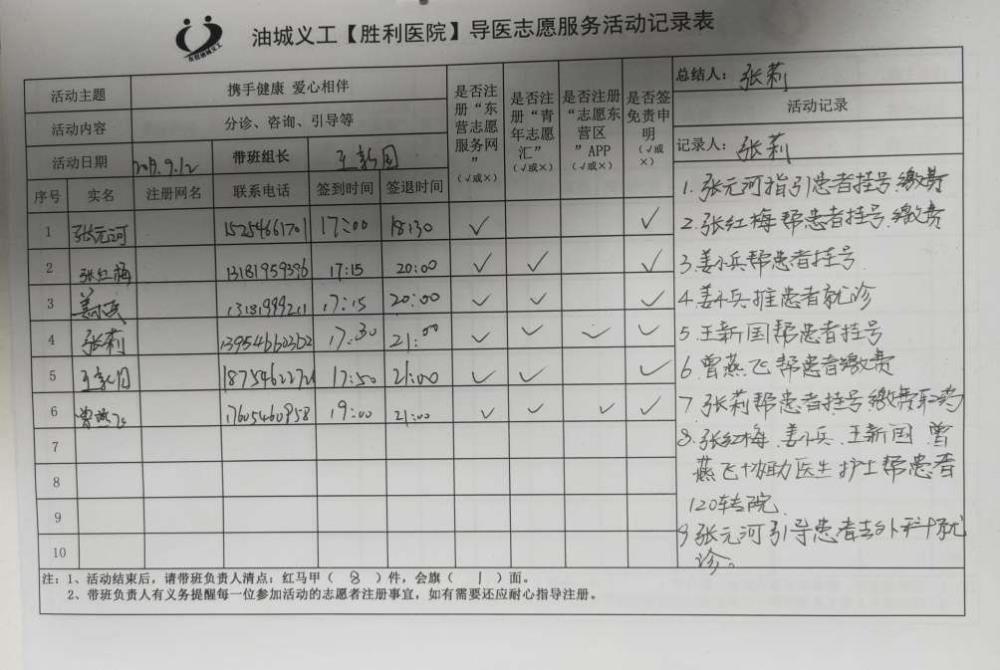 油城义工【胜利医院】导医志愿服务活动记录表
东营油城义工
活动主题 携手健康 爱心相伴
活动内容 分诊、咨询、引导等
活动日期 2019.9.12 带班组长 王新国
序号 实名 注册网名 联系电话 签到时间 签退时间 是否注册“东营志愿服务网” (√或×) 是否注册“青年志愿汇” (√或×) 是否注册“志愿东营区”APP (√或×) 是否签免责申明 (√或×)
1 张元河 15254661701 17:00 18:30 √ √
2 张红梅 13181959396 17:15 20:00 √ √ √
3 姜小兵 13181999211 17:15 20:00 √ √ √
4 张莉 13954660302 17:30 21:00 √ √ √ √
5 王新国 17:50 21:00 √ √ √
6 曾燕飞 17605460958 19:00 21:00 √ √ √ √
7
8
9
10
总结人：张莉
活动记录
记录人：张莉
1.张元河指引患者挂号.缴费
2.张红梅帮患者挂号.缴费
3.姜小兵帮患者挂号
4.姜小兵推患者就诊
5.王新国帮患者挂号
6.曾燕飞帮患者缴费
7.张莉帮患者挂号缴费取药
8.张红梅.姜小兵.王新国.曾
燕飞协助医生护士帮患者
120转院.
9.张元河引导患者去外科就
诊。
注：1、活动结束后，请带班负责人清点：红马甲（ 8 ）件，会旗（ 1 ）面。
2、带班负责人有义务提醒每一位参加活动的志愿者注册事宜，如有需要还应耐心指导注册。